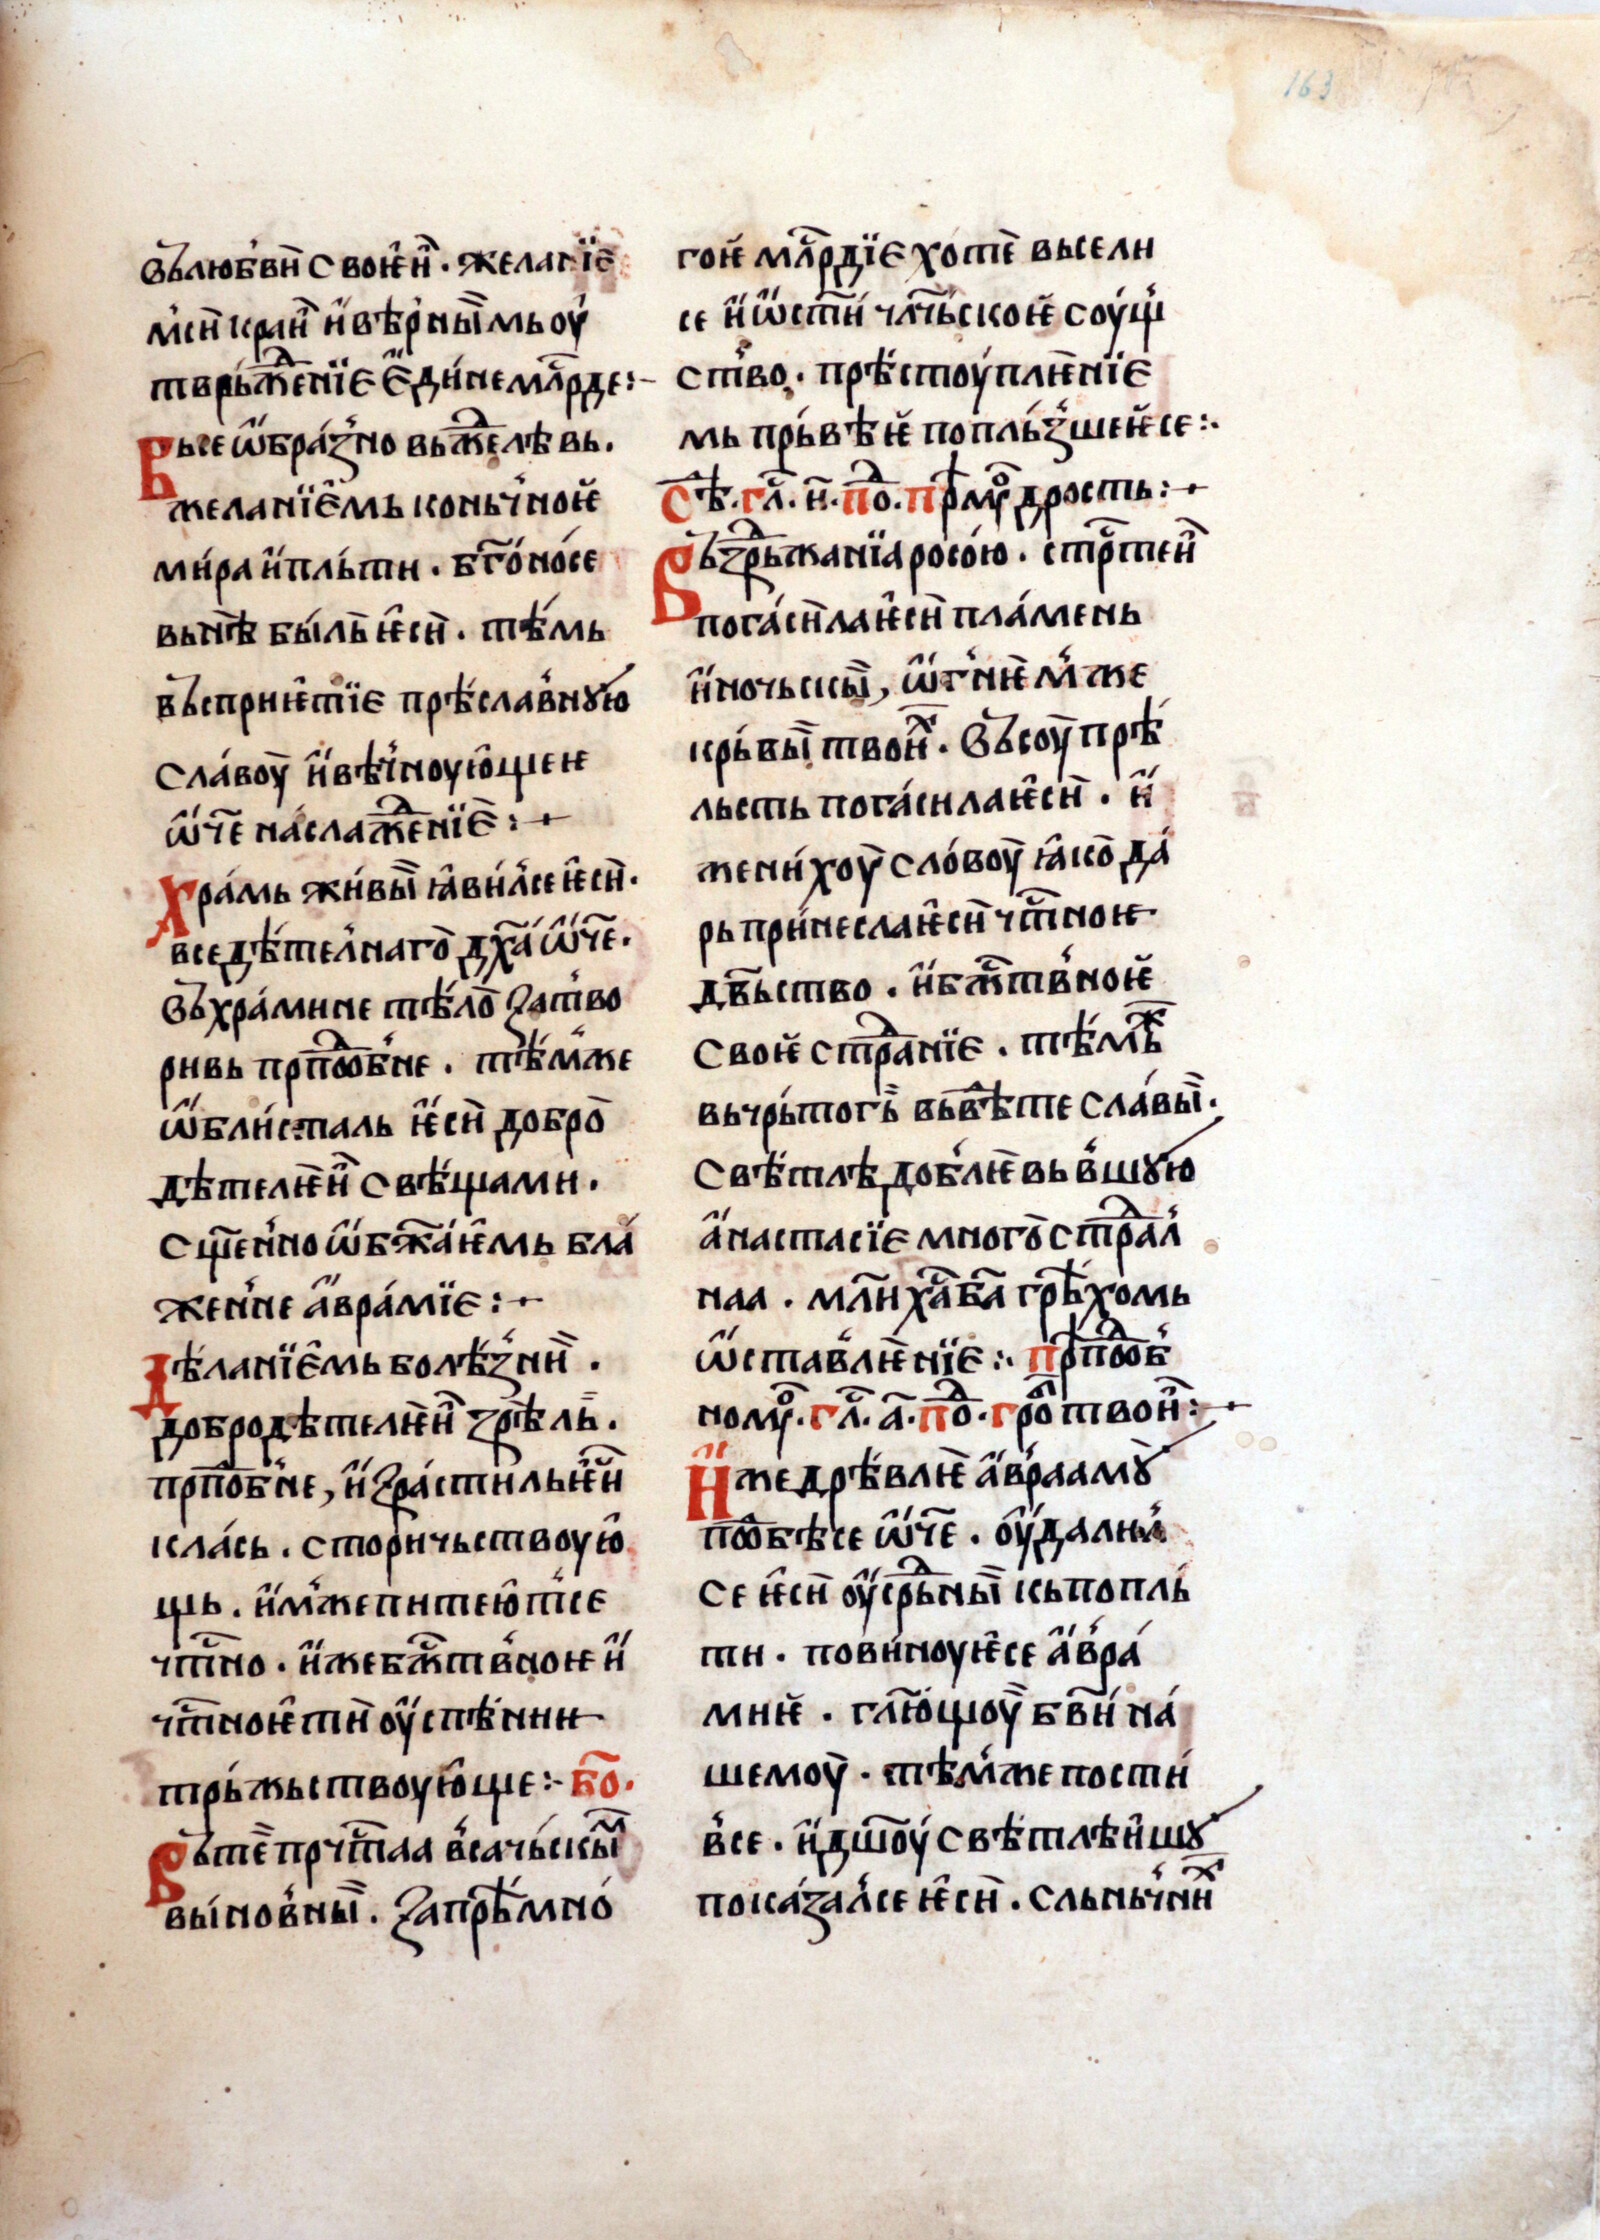 163
Въ любв҄и своѥ҆и҆. желанїе
мⷭ҇и краи҆ и҆ вѣ́рныи҆мь оу҆
твръж҇де́нїе Е҆ди́не млⷭ҇рде :–
Вьсе ѡ҆бра́зно вьжⷣелѣвь.
желанїе҆мь коньчноѥ
ми́ра и҆ плъ́ти. бг҃оно́се
вьнѣ̀ бы́ль ѥ҆сѝ. тѣ́мь
въсприѥ҆тїе прѣ́славнꙋю
сла́воу҆ и҆ вѣ́чноую҆щеѥ
ѡ҆́ч҃е насла́жⷣенїе :+
Хра́мь жи́выи ꙗ҆ви́лсе ѥ҆сѝ.
вседѣ́телнаго дх҃а́ ѡ҆́ч҃е.
Въ хра́мине тѣ́ло ꙁатво
ривь прпⷣобне. тѣ́мже
ѡ҆бли́сталь ѥ҆сѝ добро
дѣтелѥ҆и҆ свѣ́щами.
сщ҃е́нно ѡ҆бж҃а́ѥ҆мь бла́
же́нне а҆вра́мїе :+
Дѣ́ланїе҆мь болѣ́ꙁни.
добродѣтелѥ҆и҆ ꙁрѣ́ль.
прпⷣобне, и҆ꙁра́стиль ѥ҆сѝ
кла́сь. сторичьствоую҆
щь. и҆́мже питею҆тсе
чⷭ҇тно. и҆же бжⷭ҇твноѥ и҆
чⷭ҇тноѥ҆ тѝ оу҆спѣ́ниѥ
тръ́жьствоую҆ще :– бо҃.
Въ тѐ прⷱ҇таа всачь́скыⷨ
вы́новныи. Ꙁапрѣ́мно́
гоѥ҆ млⷭ҇рдїе хоте вьсели
се и҆ ѡ҆ст҃и́ чл҃чьскоѥ҆ соу́щ
ство. прѣ́стоу́плѥнїе
мь пръ́вѣѥ҆ поплъ́ꙁшеѥ҆се :·
Сѣ́. гл҃. и҃. поⷣ. Прⷨꙋдрость :+
Въꙁⷣръжанїа росо́ю. стрⷭ҇теи҆
пога́сила ѥ҆сѝ пла́мень
и҆ночьскыи, ѡ҆гнѥ́мже
кръ́выи твоиⷯ. Въсоу҆ прѣ́
льсть пога́сила ѥ҆сѝ. и҆
жени́хоу҆ сло́воу҆ ꙗ҆ко да́
рь при́несла ѥ҆сѝ чⷭ҇тноѥ
дв҃ьство. и҆ бжⷭ҇твноѥ
своѥ҆ стрⷣанїе. тѣ́мьⷤ
вь чръ́тогъ вь свѣте сла́выи.
свѣ́тлѣ доблѥ вьвшꙋю
а҆настасїе многострⷣал
наа. мл҃и х҃а б҃а грѣ́хомь
ѡ҆ставлѥ́нїе :· Прпⷣоб
номꙋ. гл҃. а҃. поⷣ. гроⷠ твои҆ :+
И҆же дрѣ́влѥ а҆враамꙋ̀
поⷣбѣсе ѡ҆́ч҃е. оу҆дали́л
се ѥ҆сѝ оу҆срⷣьныи кь по плъ́
ти. пови́ноуѥ҆се а҆вра́
миѥ҆. гл҃ю́щоу҆ бв҃и на́
шемоу҆. тѣ́мже пости́
всe. и҆ дш҃оу́ свѣ́тлѣи҆шꙋ
пока́ꙁалсе ѥ҆сѝ. слъньчниⷯ